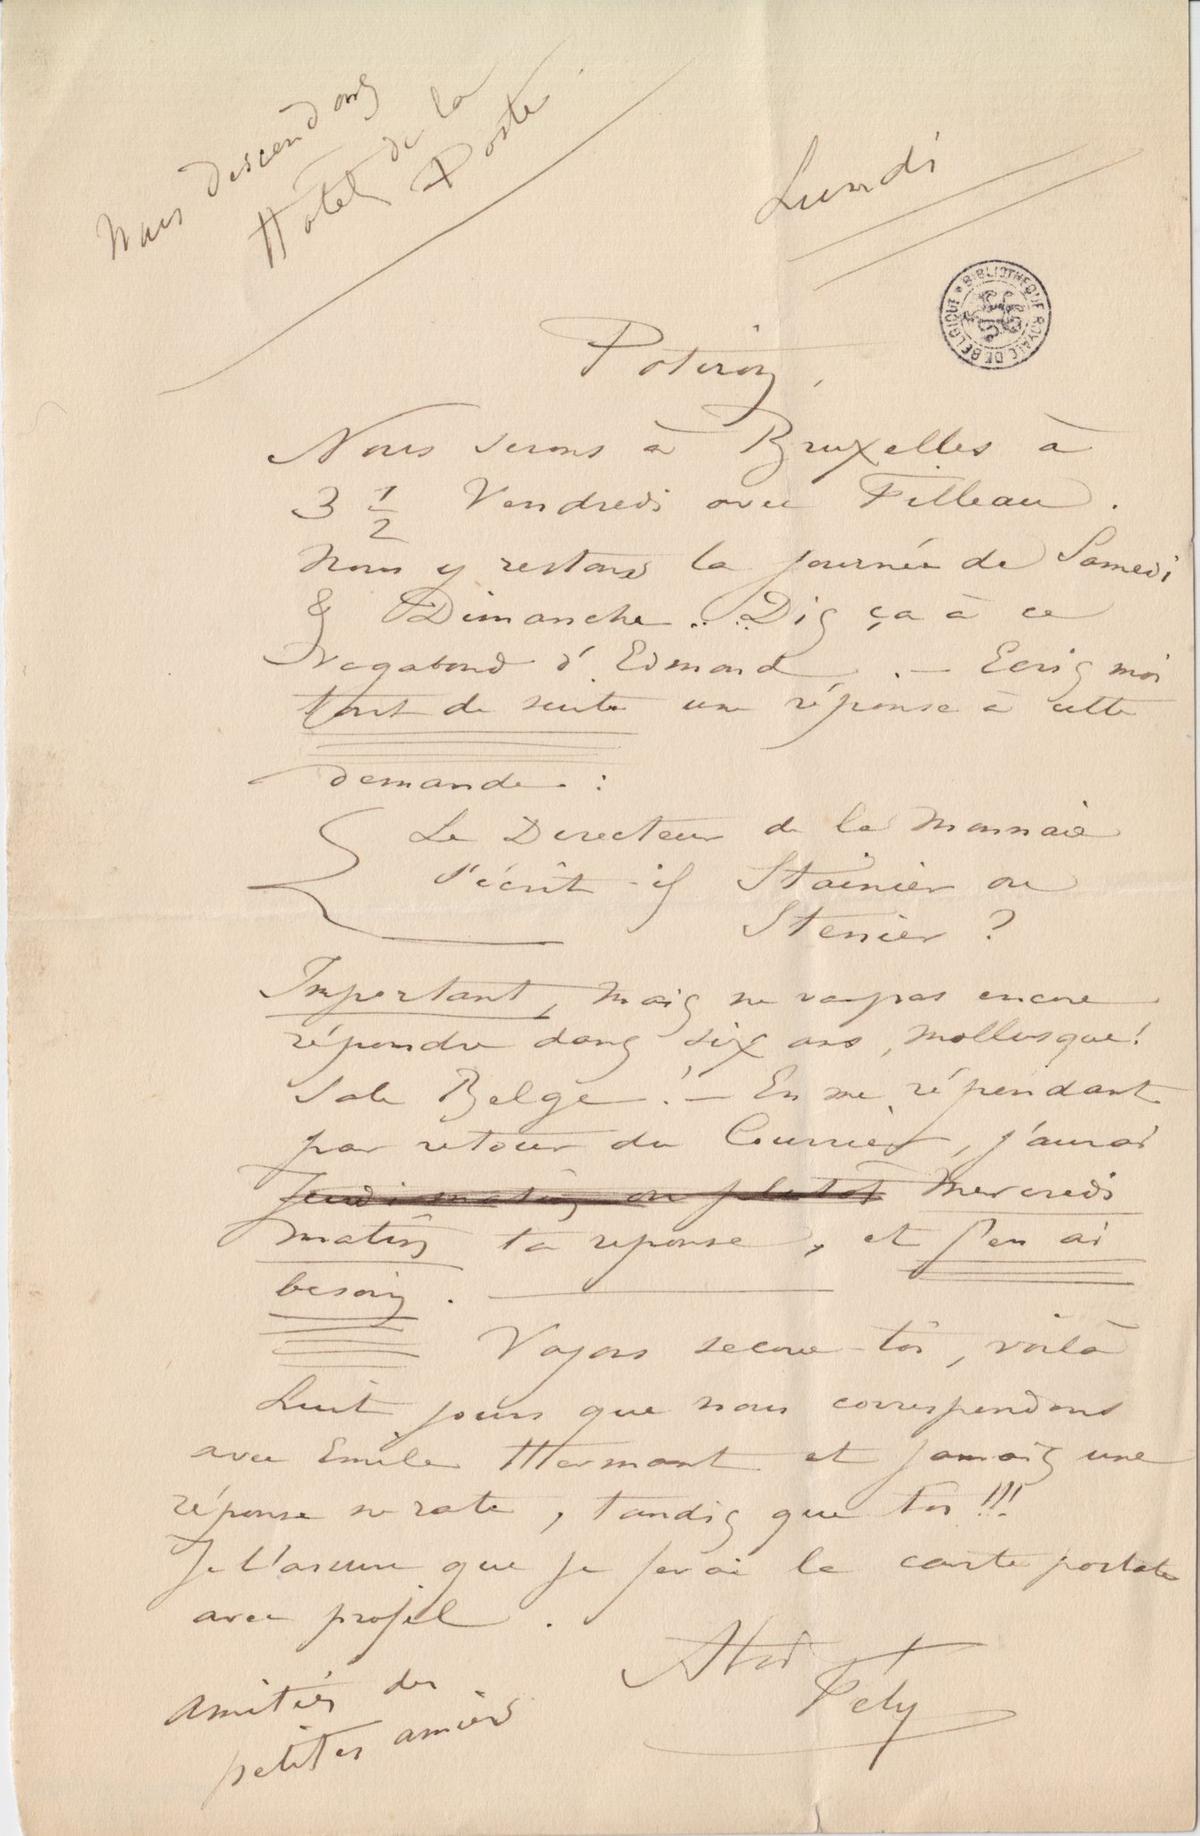 Nous descendons
Hôtel de la
Poste
Lundi
BIBLIOTHEQUE ROYALE DE BELGIQUE
Potiron,
Nous serons à Bruxelles à
3 1/2 Vendredi avec Filleau.
Nous y restons la journée de Samedi
& Dimanche... Dis ça à ce
Vagabond d'Edmond. — Ecris moi
tout de suite une réponse à cette
demande :
Le Directeur de la Monnaie
s'écrit-il Stainier ou
Stenier ?
Important, mais ne vas pas encore
répondre dans six ans, mollusque !
Sale Belge ! — En me répondant
par retour du Courrier, j'aurai
Jeudi matin ou plutôt Mercredi
matin ta reponse, et j'en ai
besoin. —
Voyons secoue-toi, voilà
huit jours que nous correspondons
avec Emile Hermant et jamais une
réponse ne rate, tandis que toi !!!
Je t'assure que je ferai la carte postale
avec profil.
Fély
Amitiés des
petites amies